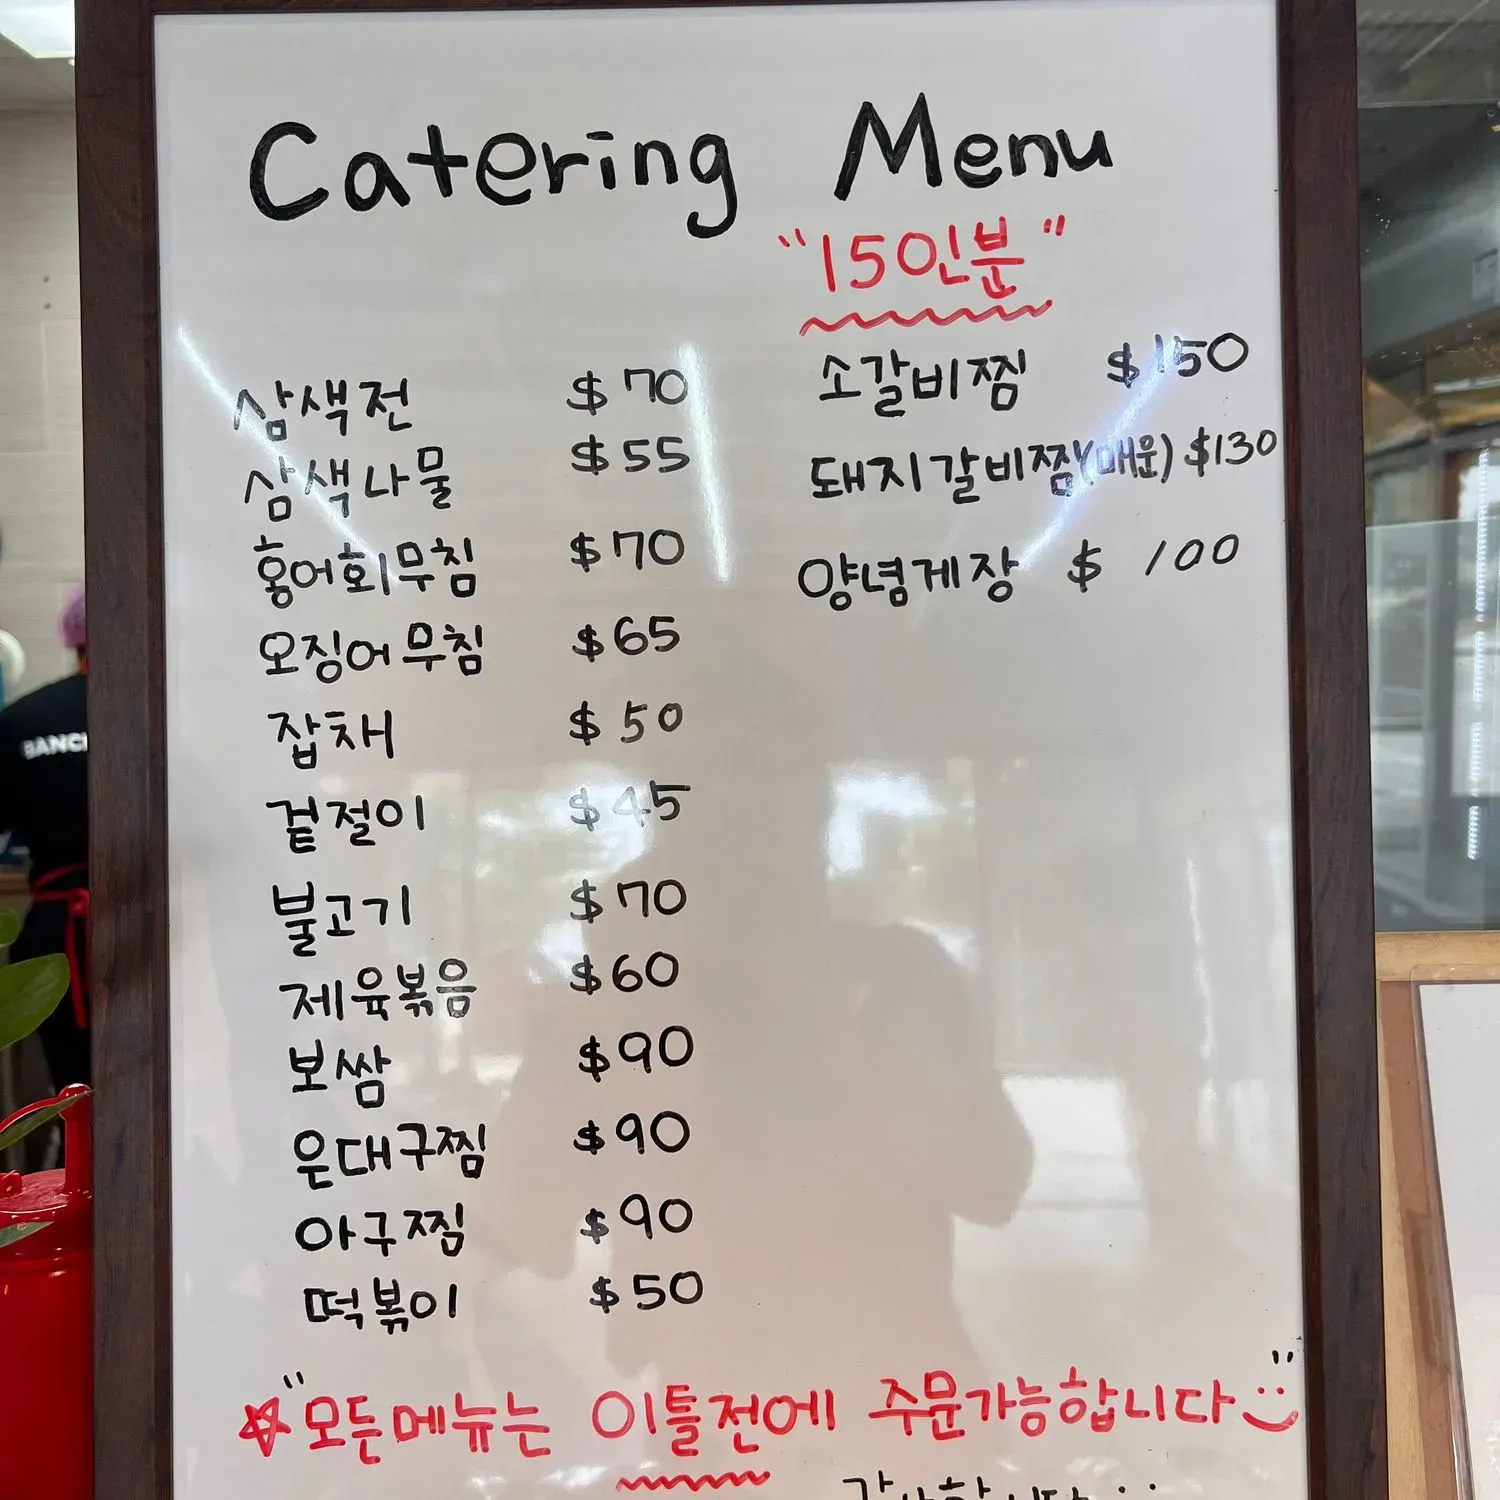 Catering Menu
"15인분"
삼색전 $70
삼색나물 $55
홍어회무침 $70
오징어무침 $65
잡채 $50
겉절이 $45
불고기 $70
제육볶음 $60
보쌈 $90
은대구찜 $90
아구찜 $90
떡볶이 $50
소갈비찜 $150
돼지갈비찜(매운) $130
양념게장 $100
"모든메뉴는 이틀전에 주문가능합니다"
감사합니다